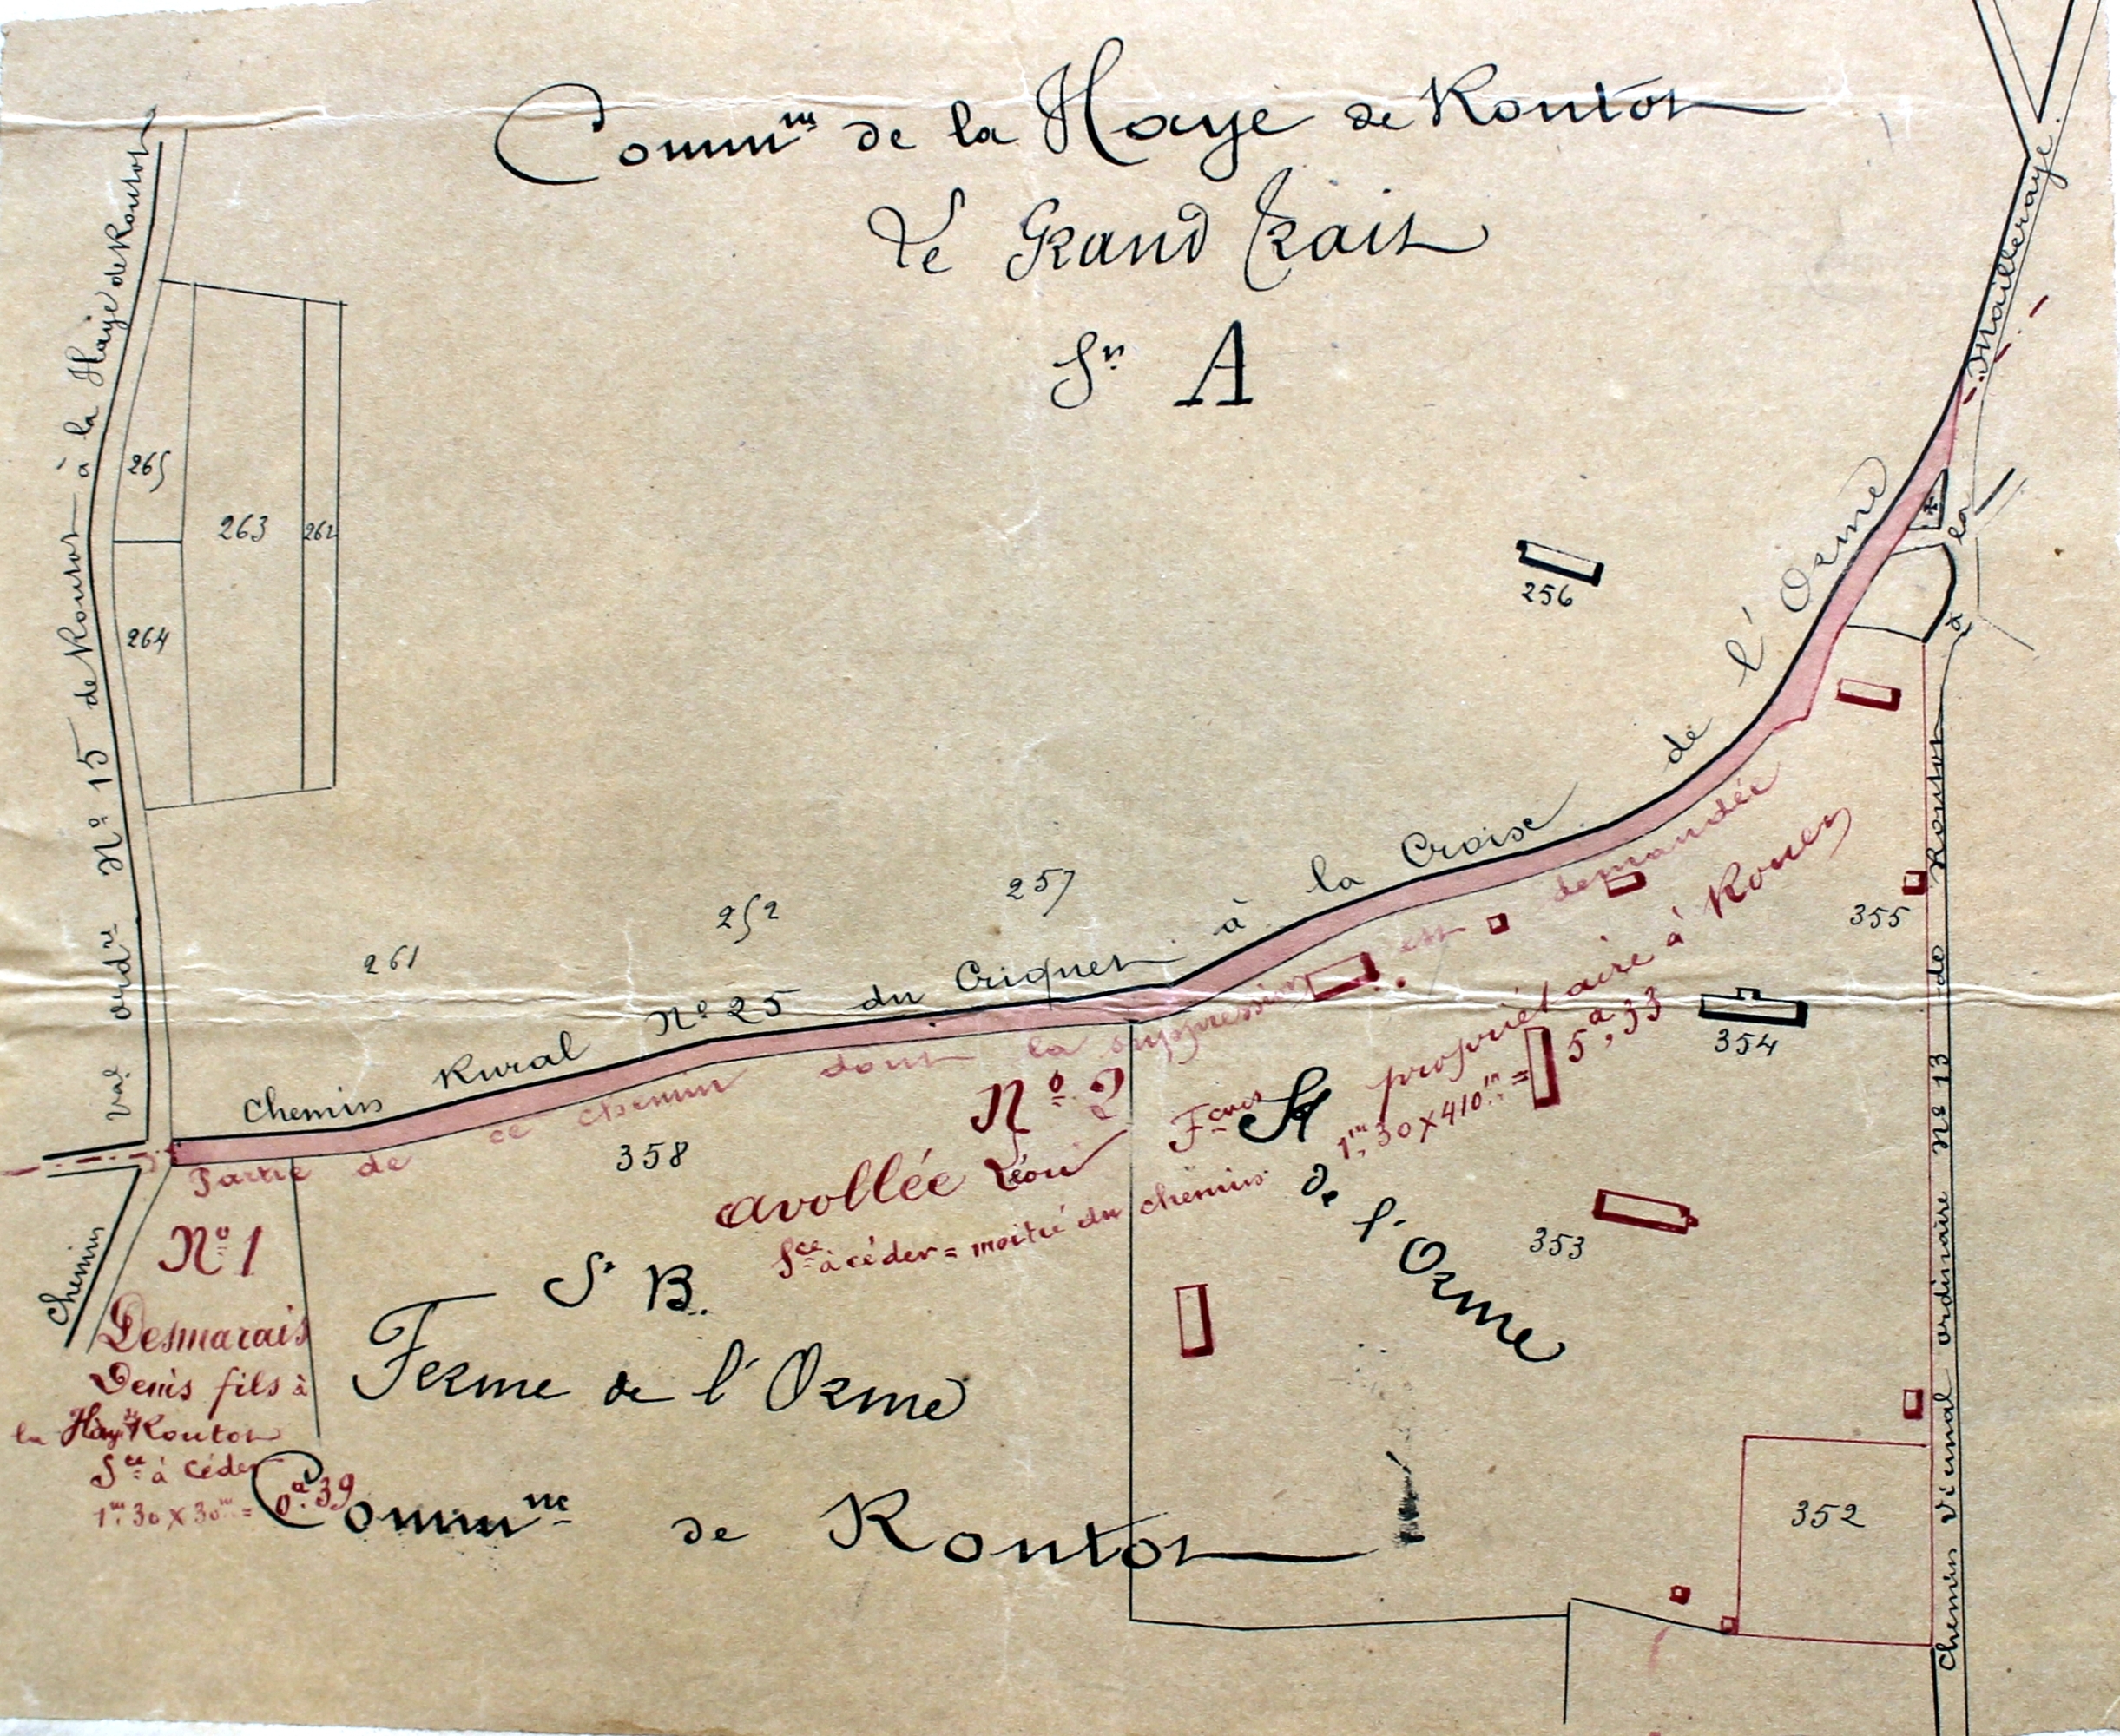 Comm^ne de la Haye de Routot
Le Grand Trait
S^n A
V^al ord^re N° 15 de Routot à la Haye de Routot
265
263
262
264
256
261
252
257
Chemin Rural N° 25 du Criquet à la Croix de l'Orme
Partie de ce chemin dont la suppression est demandée
358
N° 2
Avollée Léon propriétaire à Rouen
S^ce à céder = moitié du chemin 1^m,30 x 410^m = 5^a,33
F^me S^t
de l'Orme
355
354
353
352
Chemin
N° 1
Desmarais
Denis fils à
la Haye de Routot
S^ce à céder
1^m,30 x 30^m = 0^a,39
S^n B.
Ferme de l'Orme
Comm^ne de Routot
Chemin vicinal ordinaire N° 13 de Routot à la Mailleraye.